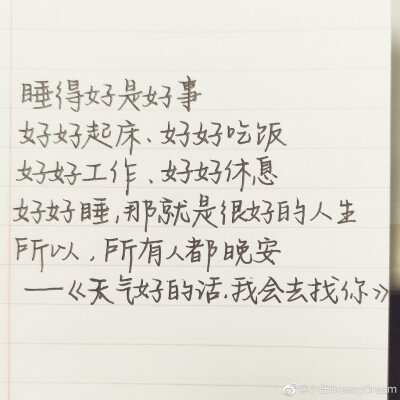 睡得好是好事
好好起床、好好吃饭
好好工作、好好休息
好好睡,那就是很好的人生
所以,所有人都晚安
——《天气好的话,我会去找你》